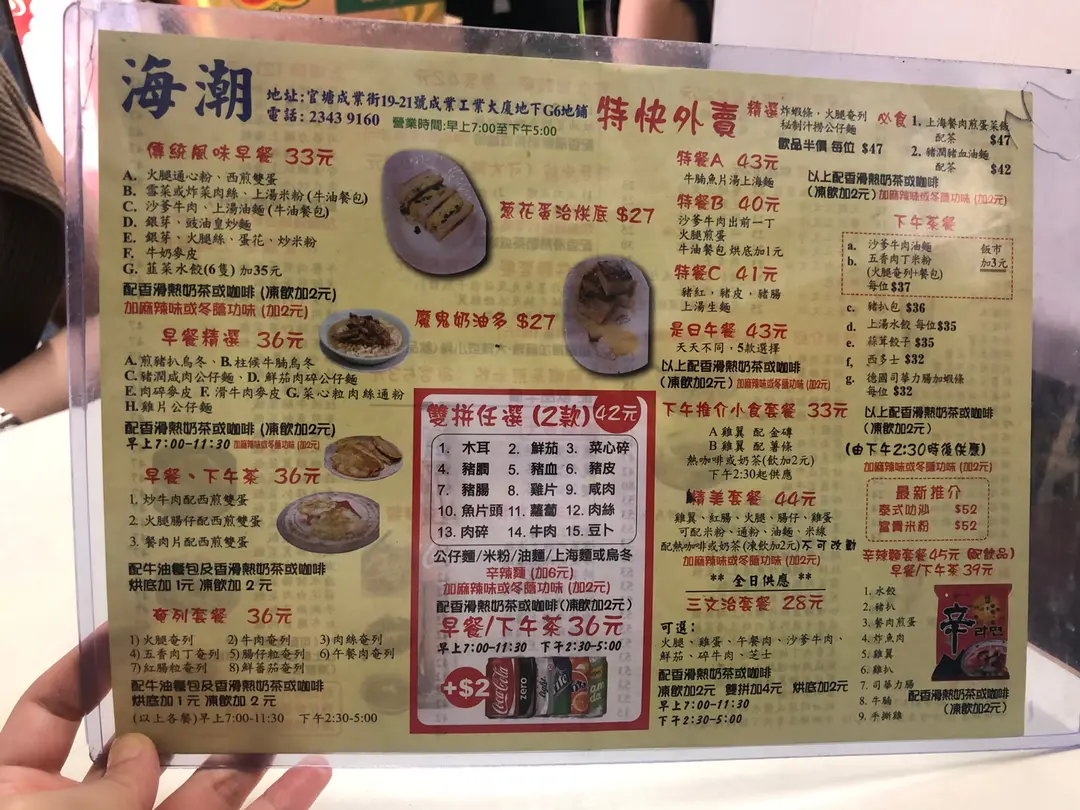 海潮
地址:官塘成業街19-21號成業工業大廈地下G6地鋪
電話: 2343 9160
營業時間:早上7:00至下午5:00
傳統風味早餐 33元
A. 火腿通心粉、西煎雙蛋
B. 雪菜或炸菜肉絲、上湯米粉(牛油餐包)
C. 沙爹牛肉、上湯油麵(牛油餐包)
D. 銀芽、豉油皇炒麵
E. 銀芽、火腿絲、蛋花、炒米粉
F. 牛奶麥皮
G. 韮菜水餃(6隻) 加35元
配香滑熱奶茶或咖啡 (凍飲加2元)
加麻辣味或冬蔭功味 (加2元)
早餐精選 36元
A.煎豬扒烏冬、B.柱候牛腩烏冬
C.豬潤咸肉公仔麵、D. 鮮茄肉碎公仔麵
E.肉碎麥皮 F. 滑牛肉麥皮 G.菜心粒肉絲通粉
H.雞片公仔麵
配香滑熱奶茶或咖啡 (凍飲加2元)
早上7:00-11:30 加麻辣味或冬蔭功味 (加2元)
早餐、下午茶 36元
1. 炒牛肉配西煎雙蛋
2. 火腿腸仔配西煎雙蛋
3. 餐肉片配西煎雙蛋
配牛油餐包及香滑熱奶茶或咖啡
烘底加1元 凍飲加 2 元
奄列套餐 36元
1)火腿奄列 2)牛肉奄列 3)肉絲奄列
4)五香肉丁奄列 5)腸仔粒奄列 6)午餐肉奄列
7)紅腸粒奄列 8)鮮蕃茄奄列
配牛油餐包及香滑熱奶茶或咖啡
烘底加 1 元 凍飲加 2 元
(以上各餐)早上7:00-11:30 下午2:30-5:00
蔥花蛋治烘底 $27
魔鬼奶油多 $27
雙拼任選 (2款) 42元
1. 木耳 2. 鮮茄 3. 菜心碎
4. 豬膶 5. 豬血 6. 豬皮
7. 豬腸 8. 雞片 9. 咸肉
10. 魚片頭 11. 蘿蔔 12. 肉絲
13. 肉碎 14. 牛肉 15. 豆卜
公仔麵/米粉/油麵/上海麵或烏冬
辛辣麵 (加6元)
加麻辣味或冬蔭功味 (加2元)
配香滑熱奶茶或咖啡(凍飲加2元)
早餐/下午茶 36元
早上7:00-11:30 下午2:30-5:00
+$2
Coca-Cola
zero
特快外賣
精選 炸蝦條、火腿奄列
秘制汁撈公仔麵
飲品半價 每位 $47
必食 1. 上海餐肉煎蛋菜飯
配茶 $47
2. 豬潤豬血油麵
配茶 $42
以上配香滑熱奶茶或咖啡
(凍飲加2元) 加麻辣味或冬蔭功味 (加2元)
特餐A 43元
牛腩魚片湯上海麵
特餐B 40元
沙爹牛肉出前一丁
火腿煎蛋
牛油餐包 烘底加1元
特餐C 41元
豬紅，豬皮，豬腸
上湯生麵
是日午餐 43元
天天不同，5款選擇
以上配香滑熱奶茶或咖啡
(凍飲加2元) 加麻辣味或冬蔭功味 (加2元)
下午推介小食套餐 33元
A 雞翼 配 金磚
B 雞翼 配 薯條
熱咖啡或奶茶(飲加2元)
下午2:30起供應
精美套餐 44元
雞翼、紅腸、火腿、腸仔、雞蛋
可配米粉、通粉、油麵、米線
配熱咖啡或奶茶(凍飲加2元)不可改動
加麻辣味或冬蔭功味 (加2元)
** 全日供應 **
三文治套餐 28元
可選:
火腿、雞蛋、午餐肉、沙爹牛肉，
鮮茄、碎牛肉、芝士
配香滑熱奶茶或咖啡
凍飲加2元 雙拼加4元 烘底加2元
早上7:00-11:30
下午2:30-5:00
下午茶餐
a. 沙爹牛肉油麵 飯市
b. 五香肉丁米粉 加3元
(火腿奄列+餐包)
每位$37
c. 豬扒包 $36
d. 上湯水餃 每位$35
e. 蒜茸餃子 $35
f. 西多士 $32
g. 德國司華力腸加蝦條
每位 $32
以上配香滑熱奶茶或咖啡
(凍飲加2元)
(由下午2:30時後供應)
加麻辣味或冬蔭功味 (加2元)
最新推介
泰式叻沙 $52
富貴米粉 $52
辛辣麵套餐45元 (配飲品)
早餐/下午茶 39元
1. 水餃
2. 豬扒
3. 餐肉煎蛋
4. 炸魚肉
5. 雞翼
6. 雞扒
7. 司華力腸
8. 牛腩
9. 手撕雞
辛
라면
配香滑熱奶茶或咖啡
(凍飲加2元)